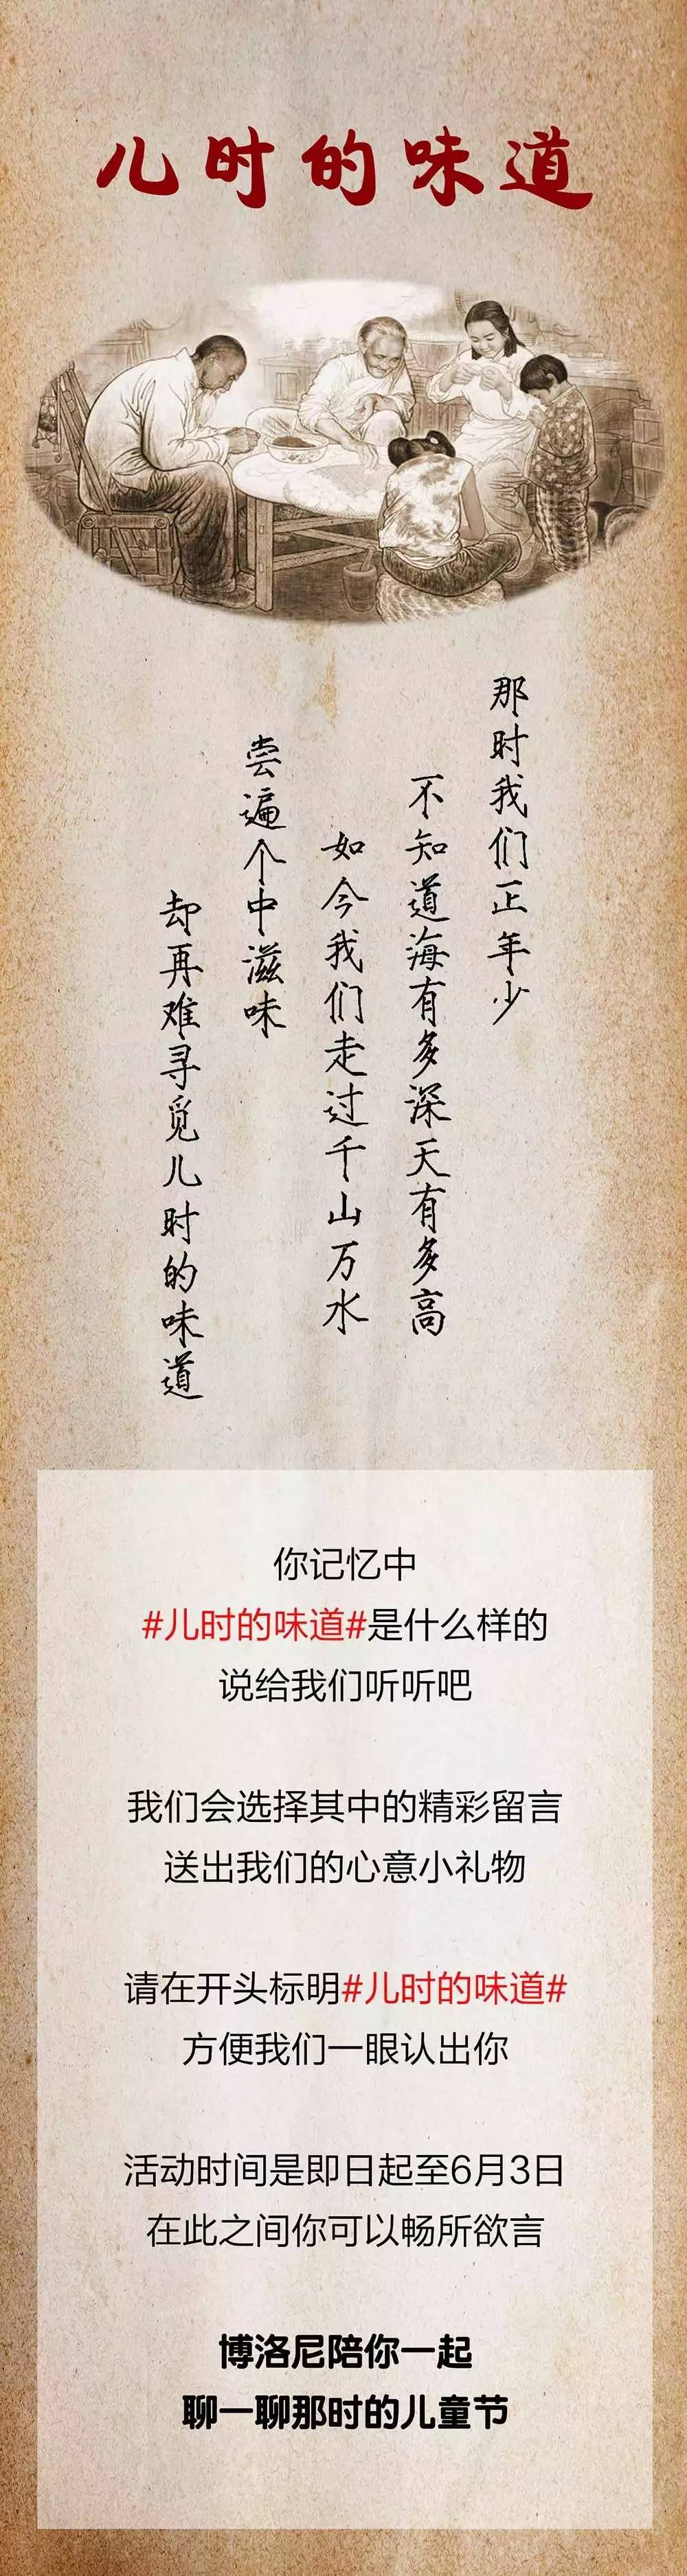 儿时的味道
那时我们正年少
不知道海有多深天有多高
如今我们走过千山万水
尝遍个中滋味
却再难寻觅儿时的味道
你记忆中
#儿时的味道#是什么样的
说给我们听听吧
我们会选择其中的精彩留言
送出我们的心意小礼物
请在开头标明#儿时的味道#
方便我们一眼认出你
活动时间是即日起至6月3日
在此之间你可以畅所欲言
博洛尼陪你一起
聊一聊那时的儿童节